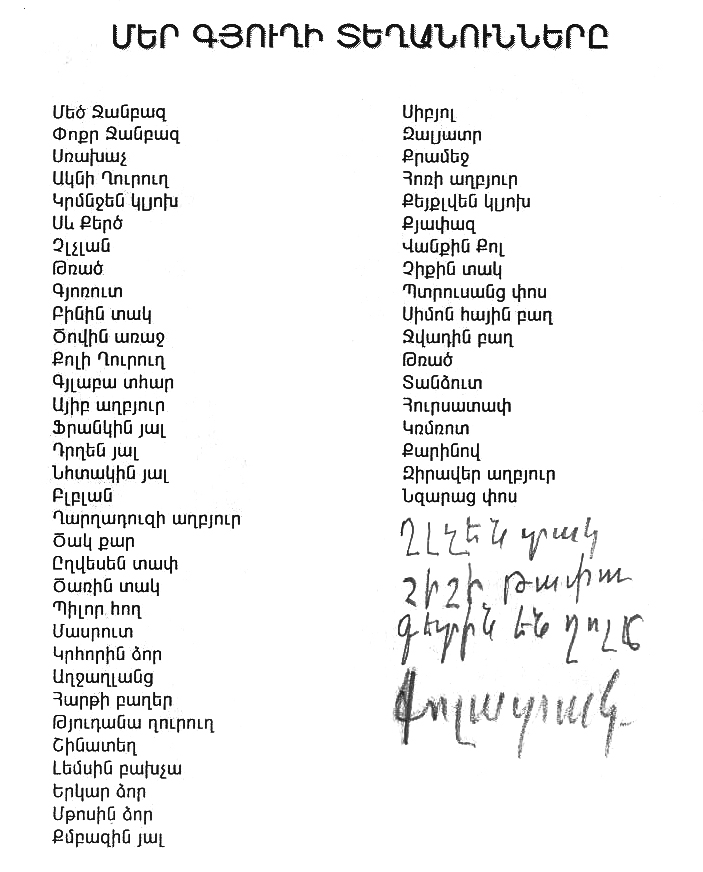 ՄԵՐ ԳՅՈՒՂԻ ՏԵՂԱՆՈՒՆՆԵՐԸ
Մեծ Ջանբազ
Փոքր Ջանբազ
Սռախաչ
Ակնի Ղուրուղ
Կրմնջեն կլյոխ
Սև Քերծ
Չլչլան
Թռած
Գյոռուտ
Բինին տակ
Ծովին առաջ
Քոլի Ղուրուղ
Գյլաբա տհար
Այիբ աղբյուր
Ֆրանկին յալ
Դրղեն յալ
Նհտակին յալ
Բլբլան
Ղարղադուզի աղբյուր
Ծակ քար
Ըղվեսեն տափ
Ծառին տակ
Պիլոր հող
Մասրուտ
Կրհորին ձոր
Աղջաղլանց
Հարթի բաղեր
Թյուդանա ղուրուղ
Շինատեղ
Լեմսին բախչա
Երկար ձոր
Մթոսին ձոր
Քմբազին յալ
Սիբյոլ
Զալյատր
Քրամեջ
Հոռի աղբյուր
Քեյքլվեն կլյոխ
Քյափազ
Վանքին Քոլ
Չիքին տակ
Պտրուսանց փոս
Սիմոն հային բաղ
Ջվադին բաղ
Թռած
Տանձուտ
Հուրսատափ
Կռմռոտ
Քարինով
Զիրավեր աղբյուր
Նզարաց փոս
տակ
շիշի թափա
գետին են
Փոլատակ